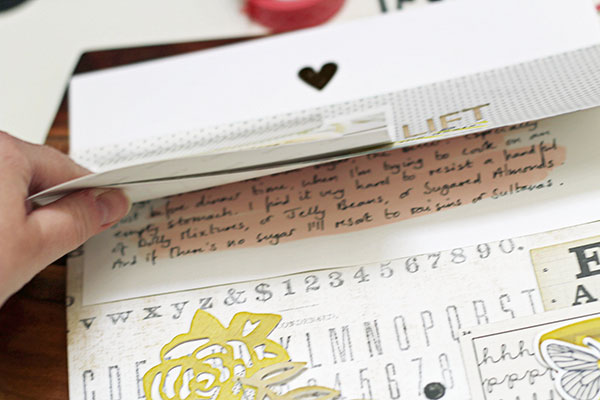 LIFT
especially
just before dinner time, when I'm trying to cook on an
empty stomach. I find it very hard to resist a handful
of Dolly Mixtures, or Jelly Beans, or Sugared Almonds
And if there's no sugar I'll resort to raisins or Sultanas.
v w x y z & $ 1 2 3 4 5 6 7 8 9 0.
E
A
CDE JKLMNOPQRST
5678
hhh
ppp